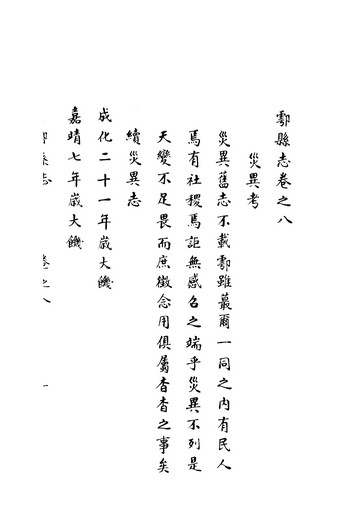 酃縣志卷之八
災異考
災異舊志不載酃雖蕞爾一同之內有民人
焉有社稷焉詎無感召之端乎災異不列是
天變不足畏而庶徵念用俱屬杳杳之事矣
續災異志
成化二十一年歲大饑
嘉靖七年歲大饑
酃縣志 卷之八 一